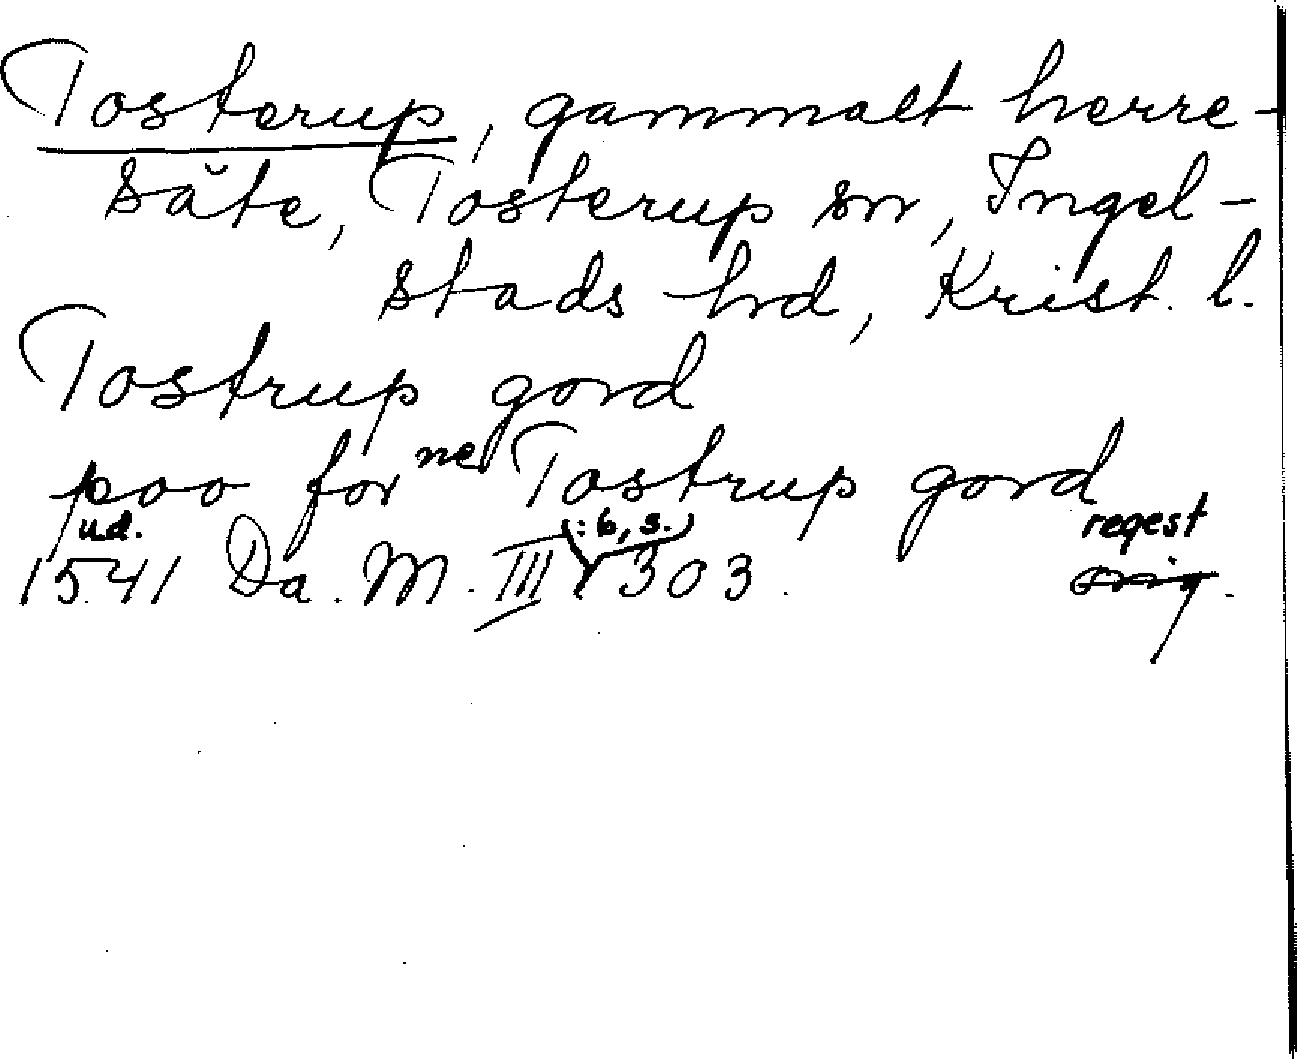 Tosterup, gammalt herre-
säte, Tosterup sn, Ingel-
stads hrd, Krist. l.
Tostrup gord
poo for ne Tostrup gord
u.d. (: 6, s.) regest
1541 Da. M. III 303. orig.